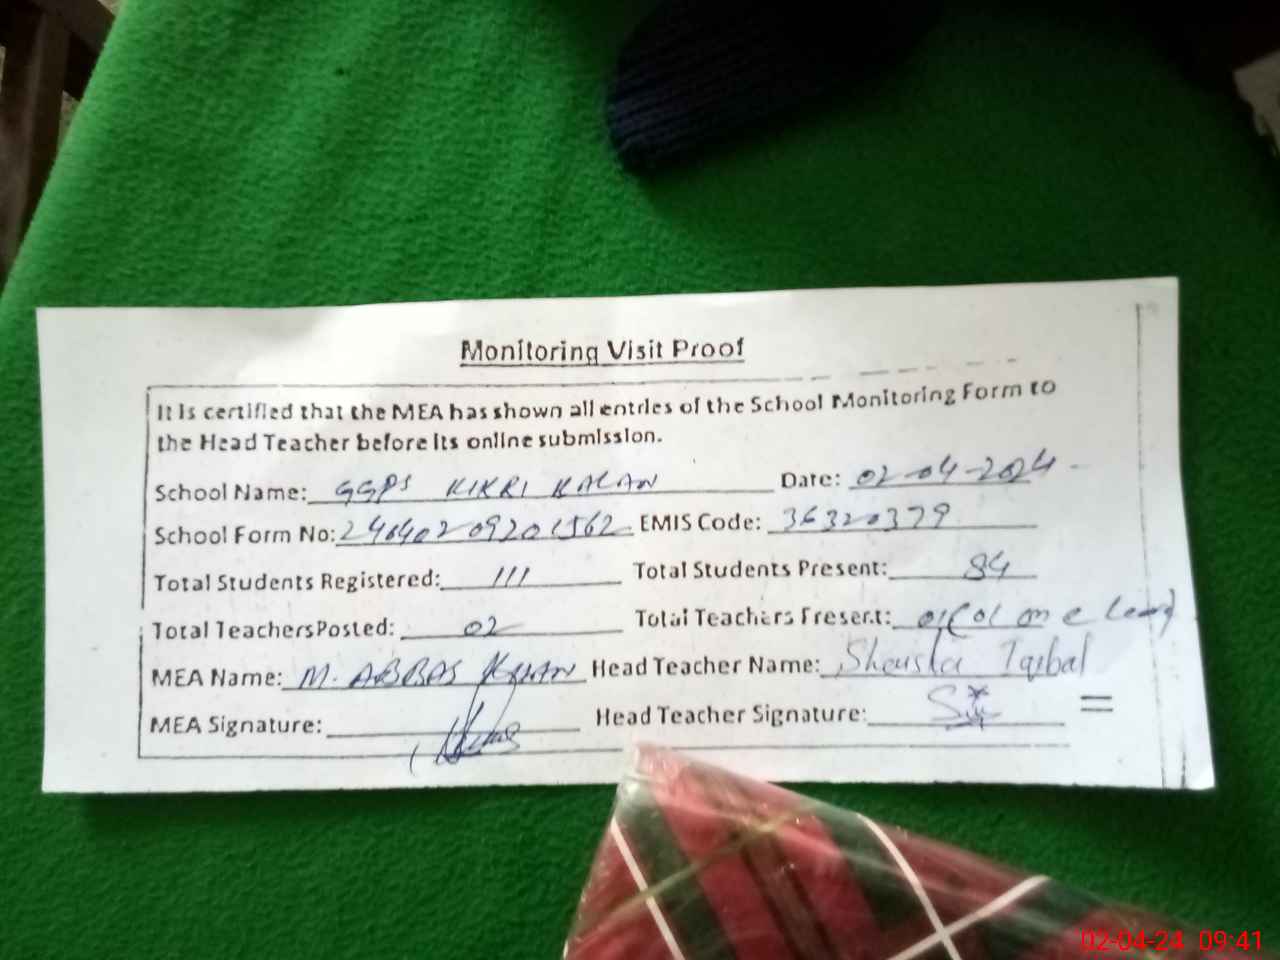 Monitoring Visit Proof
It is certified that the MEA has shown all entries of the School Monitoring Form to
the Head Teacher before its online submission.
School Name: GGPS KIKRI KALAN Date: 02-04-2024
School Form No: EMIS Code: 36320379
Total Students Registered: 111 Total Students Present: 84
Total TeachersPosted: 02 Total Teachers Present: 01(01 on e leave)
MEA Name: M. ABBAS KHAN Head Teacher Name: Iqbal
MEA Signature: Head Teacher Signature:
02-04-24 09:41